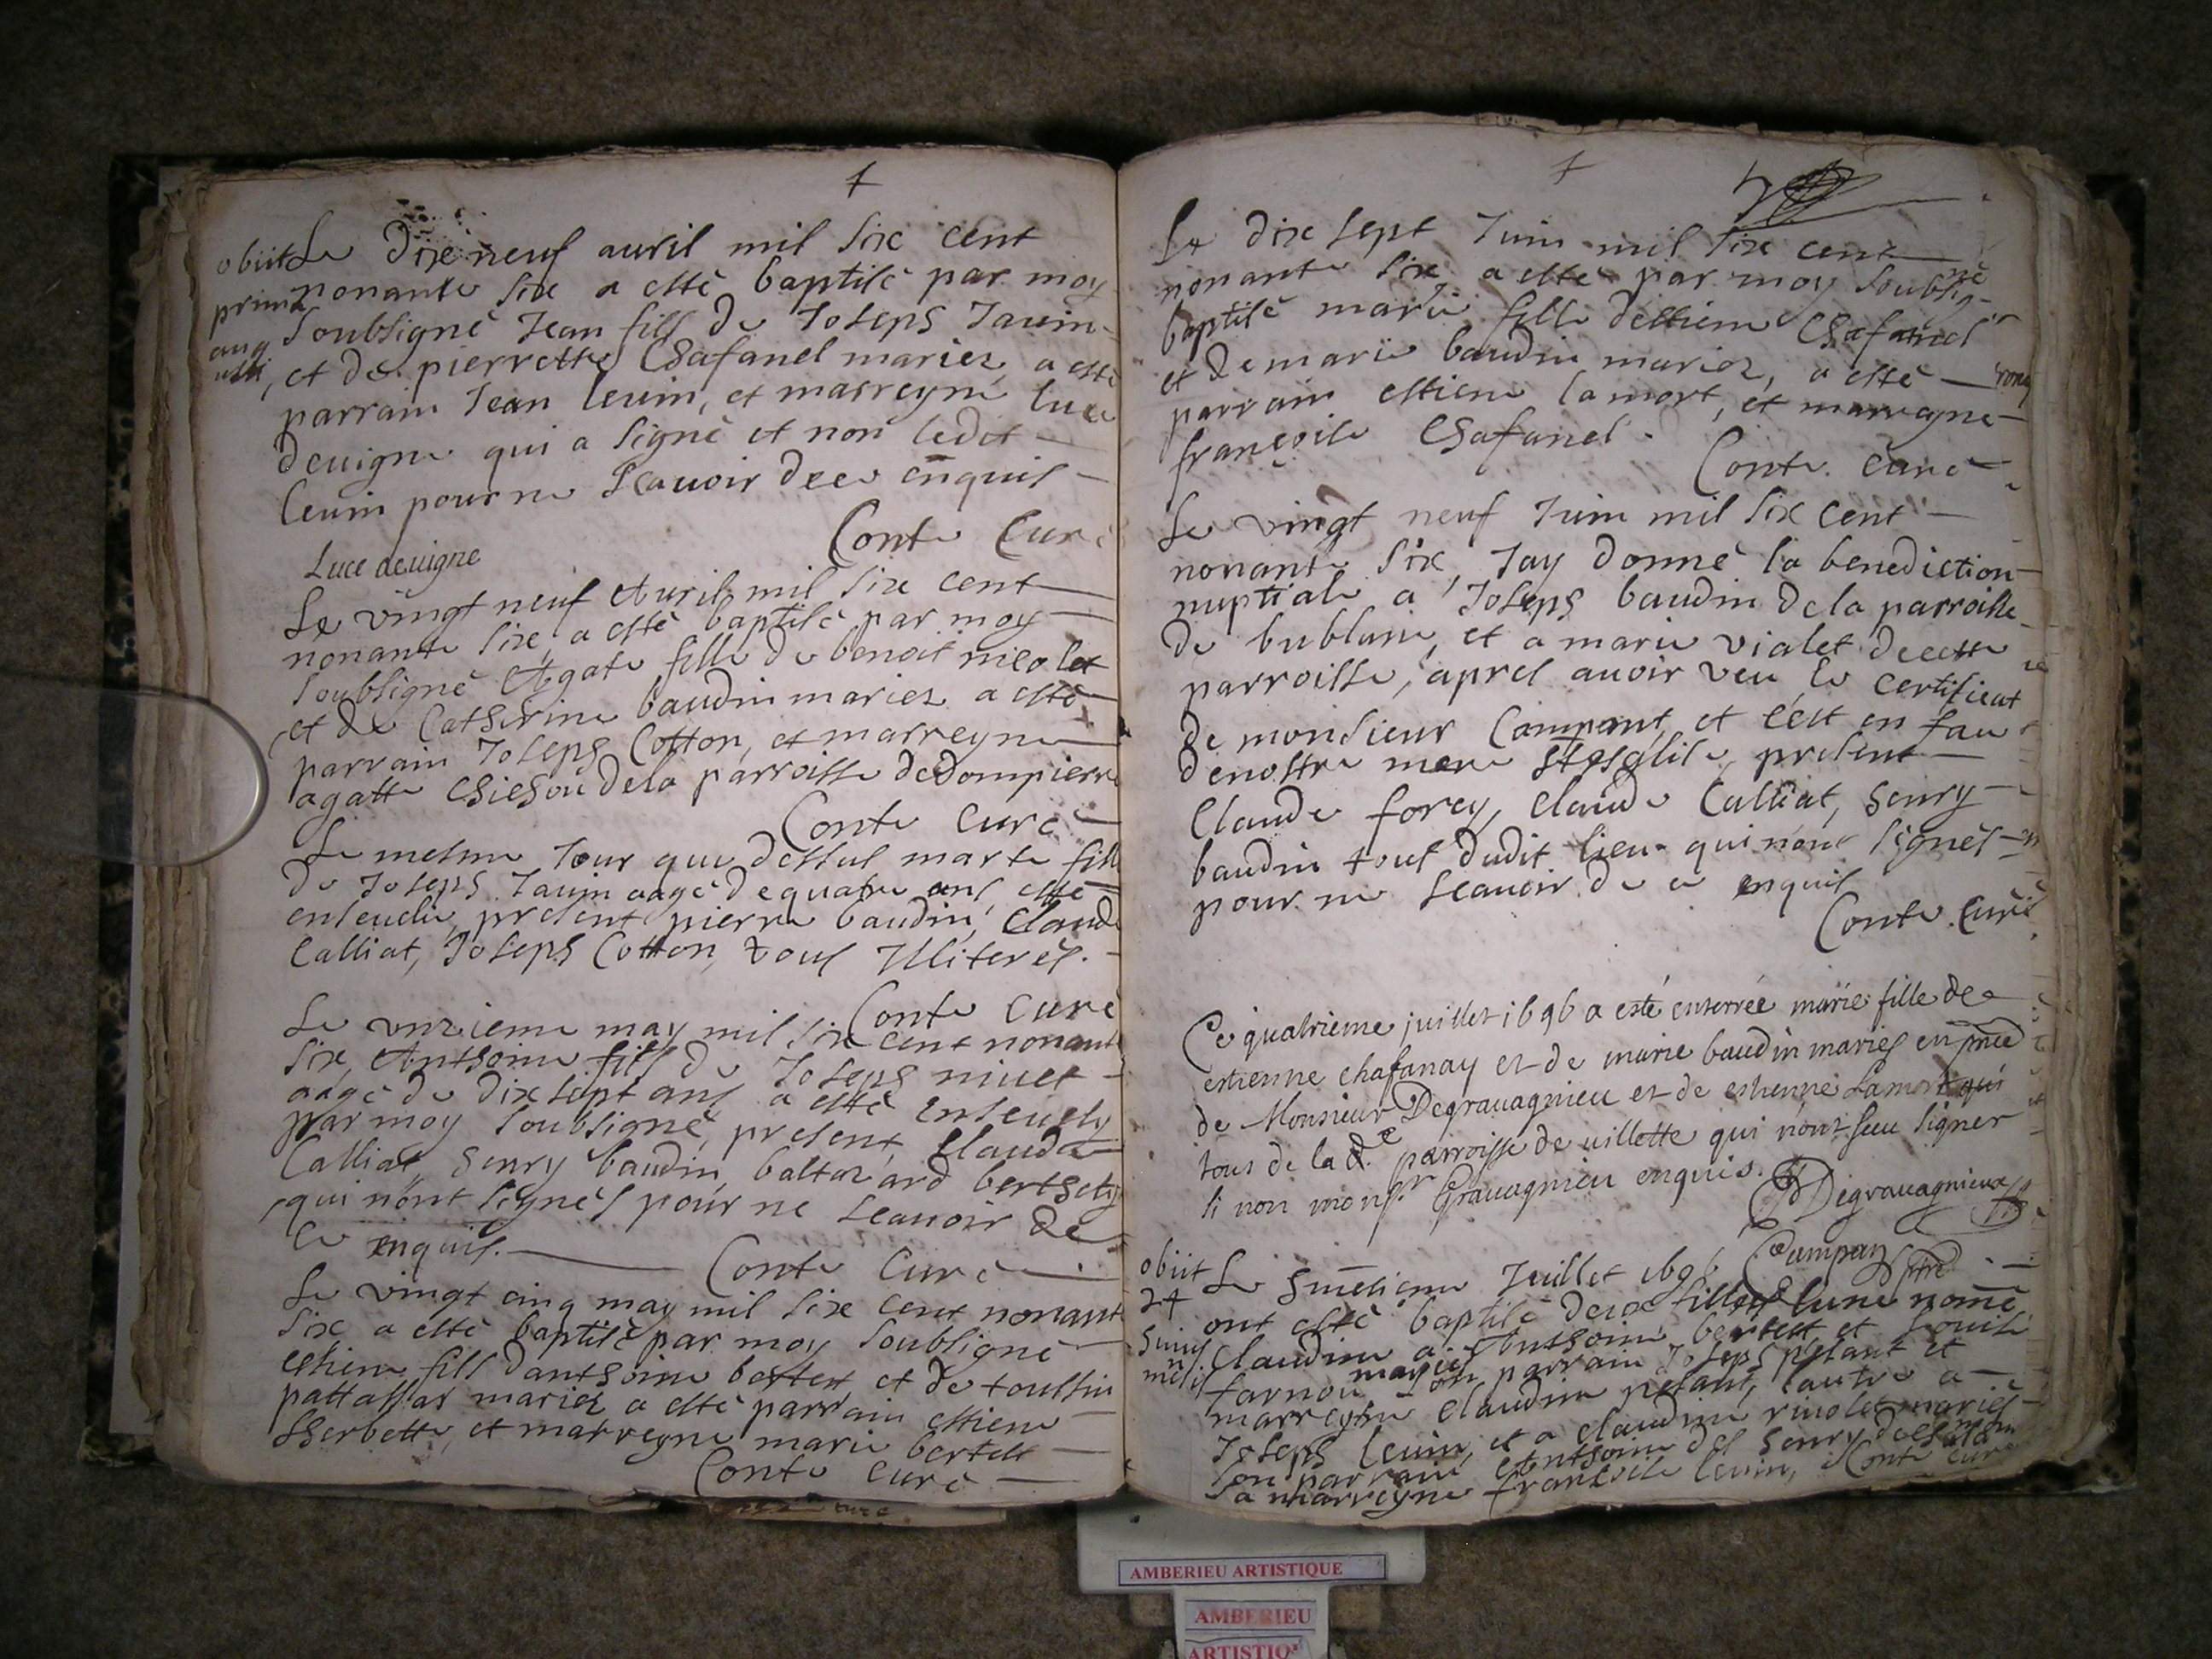 obiit
prima
aug
usti
Le dixneuf auril mil six cent
nonante six a esté baptisé par moy
soubsigné Jean fils de Joseph Janin
et de pierrette Chafanel mariez, a esté
parrain Jean leuin, et marreyne luce
deuigne qui a signé et non ledit
leuin pour ne scauoir de ce enquis
Conte Curé
Luce deuigne
Le vingt neuf Auril mil six cent
nonante six, a esté baptisé par moy
soubsigné Agate fille de benoit nicolet
et de Catherine baudin mariez a esté
parrain Joseph Cotton, et marreyne
agatte de la parroisse de dompierre
Conte Curé
Le mesme Jour que dessus marte fille
de Joseph Janin aagé de quatre ans, esté
enseuelie, present pierre baudin, Claude
Calliat, Joseph Cotton, tous Illiterés.
Conte Curé
Le vnzieme may mil six cent nonante
six Anthoine fils de Joseph niuet
aagé de dix sept ans a esté enseuely
par moy soubsigné, present, Claude
Calliat, henry baudin, baltazard berthety
qui n'ont signés pour ne scauoir de
ce enquis. Conte Curé
Le vingt cinq may mil six cent nonante
six a esté baptisé par moy soubsigné
estiene fils danthoine bertet et de toussine
pattassar mariez a esté parrain estiene
sherbette, et marreyne marie bertet
Conte Curé
Le dix sept Juin mil six cent
nonante six a esté par moy soubsigné
baptisé marie fille destiene Chafanel
et de marie baudin mariez, a esté
parrain estiene lamort, et marreyne
françoise Chafanel.
Conte. Curé
Le vingt neuf Juin mil six cent
nonante six, Jay donné la benediction
nuptiale a Joseph baudin de la parroisse
de bublane, et a marie vialet de cette
parroisse, apres auoir veu le certificat
de monsieur Compant, et c'est en face
de nostre mere Ste esglise, present
Claude forey, Claude Calliat, henry
baudin tous dudit lieu qui n'ont signés
pour ne scauoir de ce enquis
Conte. Curé
Ce quatrieme juillet 1696 a esté enterrée marie fille de
estienne chafanay et de marie baudin mariés en pnce
de Monsieur Degrauagnieu et de estienne Lamort qui
tous de la de. parroisse de uillette qui n'ont sceu signer
si non monsr. Grauagnieu enquis. Degrauagnieu
Compan ptre
obiit
24
huius
mesis
Le huictieme Juillet 1696
ont esté baptisé deux filles lune nomé
Claudine a Anthoine bertet et Louise
farnou mariés son parrain Joseph pelant et
marreyne Claudine pelant, lautre a
Joseph leuin, et a claudine niuolet mariés
son parrain Anthoine des henry
sa marreyne francoise leuin, Conte Curé
AMBERIEU ARTISTIQUE
AMBERIEU
ARTISTIQ